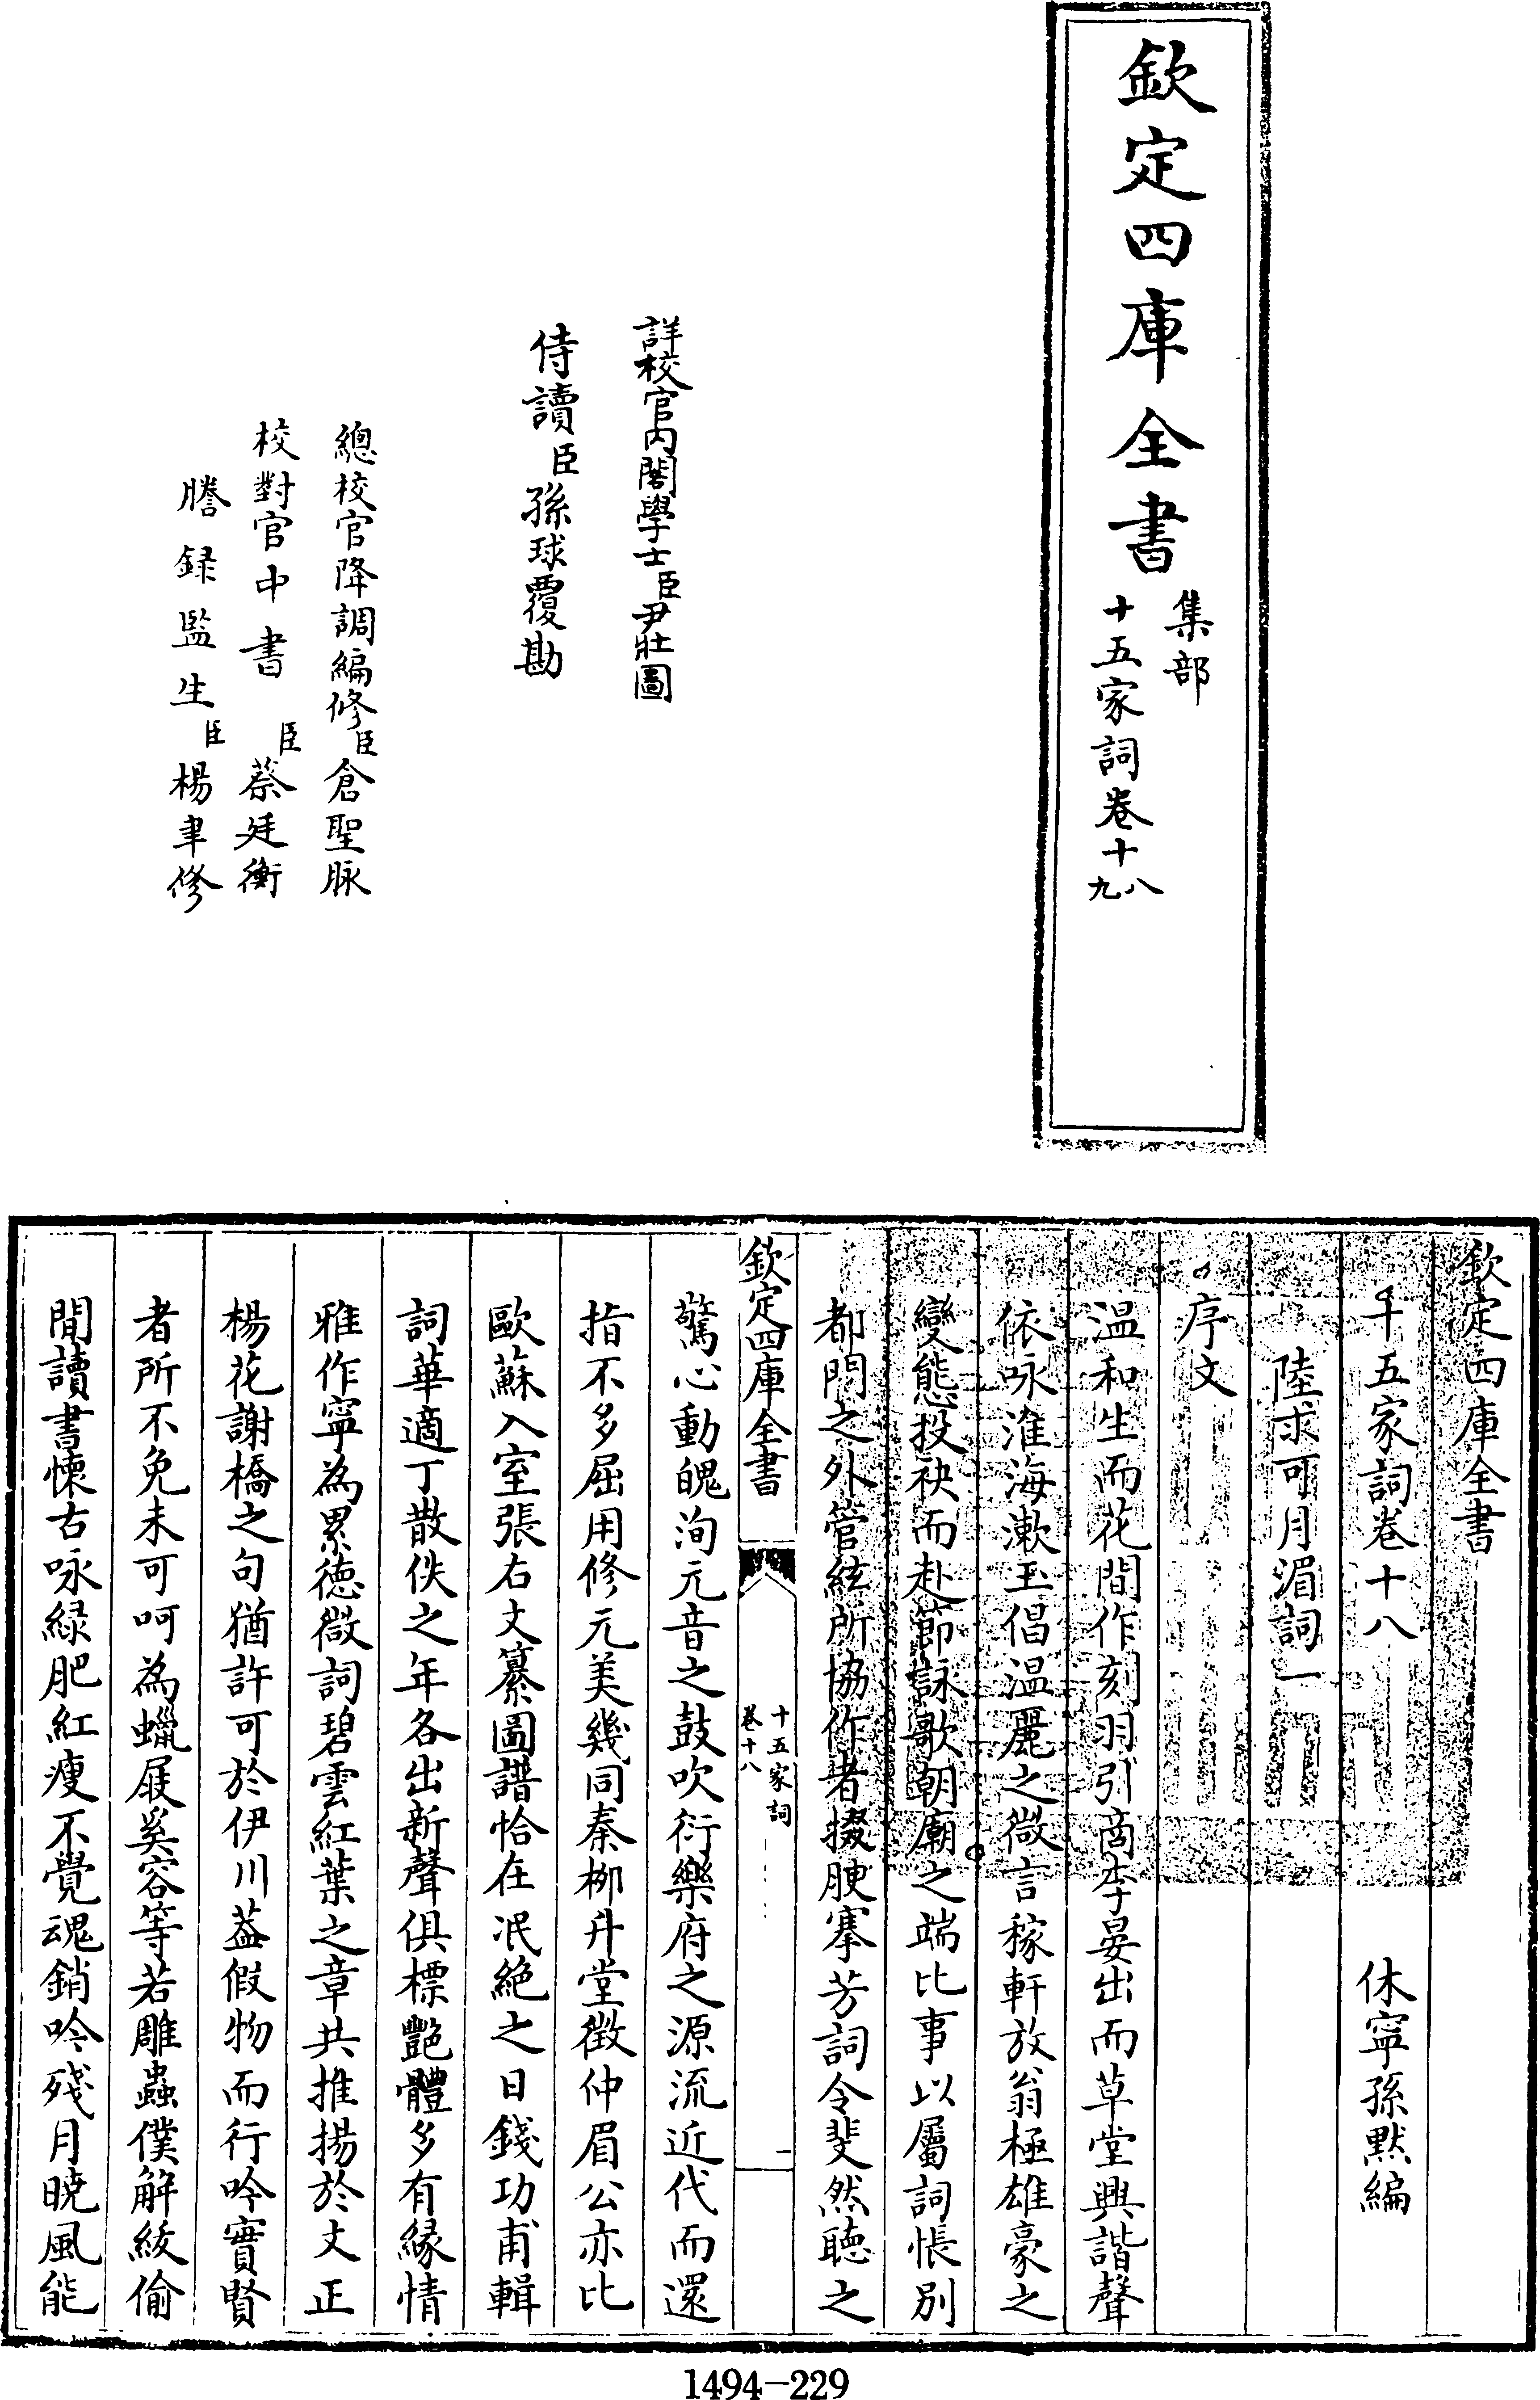 欽定四庫全書
集部
十五家詞卷十八
九
詳校官內閣學士臣尹壯圖
侍讀臣孫球覆勘
總校官降調編修臣倉聖脉
校對官中書臣蔡廷衡
謄録監生臣楊聿修
欽定四庫全書
十五家詞卷十八
休寧孫黙編
陸求可月湄詞一
序文
温和生而花間作刻羽引商李晏出而草堂興諧聲
依咏淮海漱玉倡温麗之微言稼軒放翁極雄豪之
變態投袂而赴節詠歌朝廟之端比事以屬詞悵别
都門之外管絃所協作者掇腴搴芳詞令斐然聴之
欽定四庫全書
十五家詞
卷十八
一
驚心動魄洵元音之鼓吹衍樂府之源流近代而還
指不多屈用修元美幾同秦柳升堂徵仲眉公亦比
歐蘇入室張右文纂圖譜恰在泯絶之日錢功甫輯
詞華適丁散佚之年各出新聲俱標艶體多有緣情
雅作寧為累徳微詞碧雲紅葉之章共推揚於文正
楊花謝橋之句猶許可於伊川葢假物而行吟實賢
者所不免未可呵為蠟屐奚容等若雕蟲僕解綬偷
閒讀書懐古咏緑肥紅瘦不覺魂銷吟殘月曉風能
1494-229